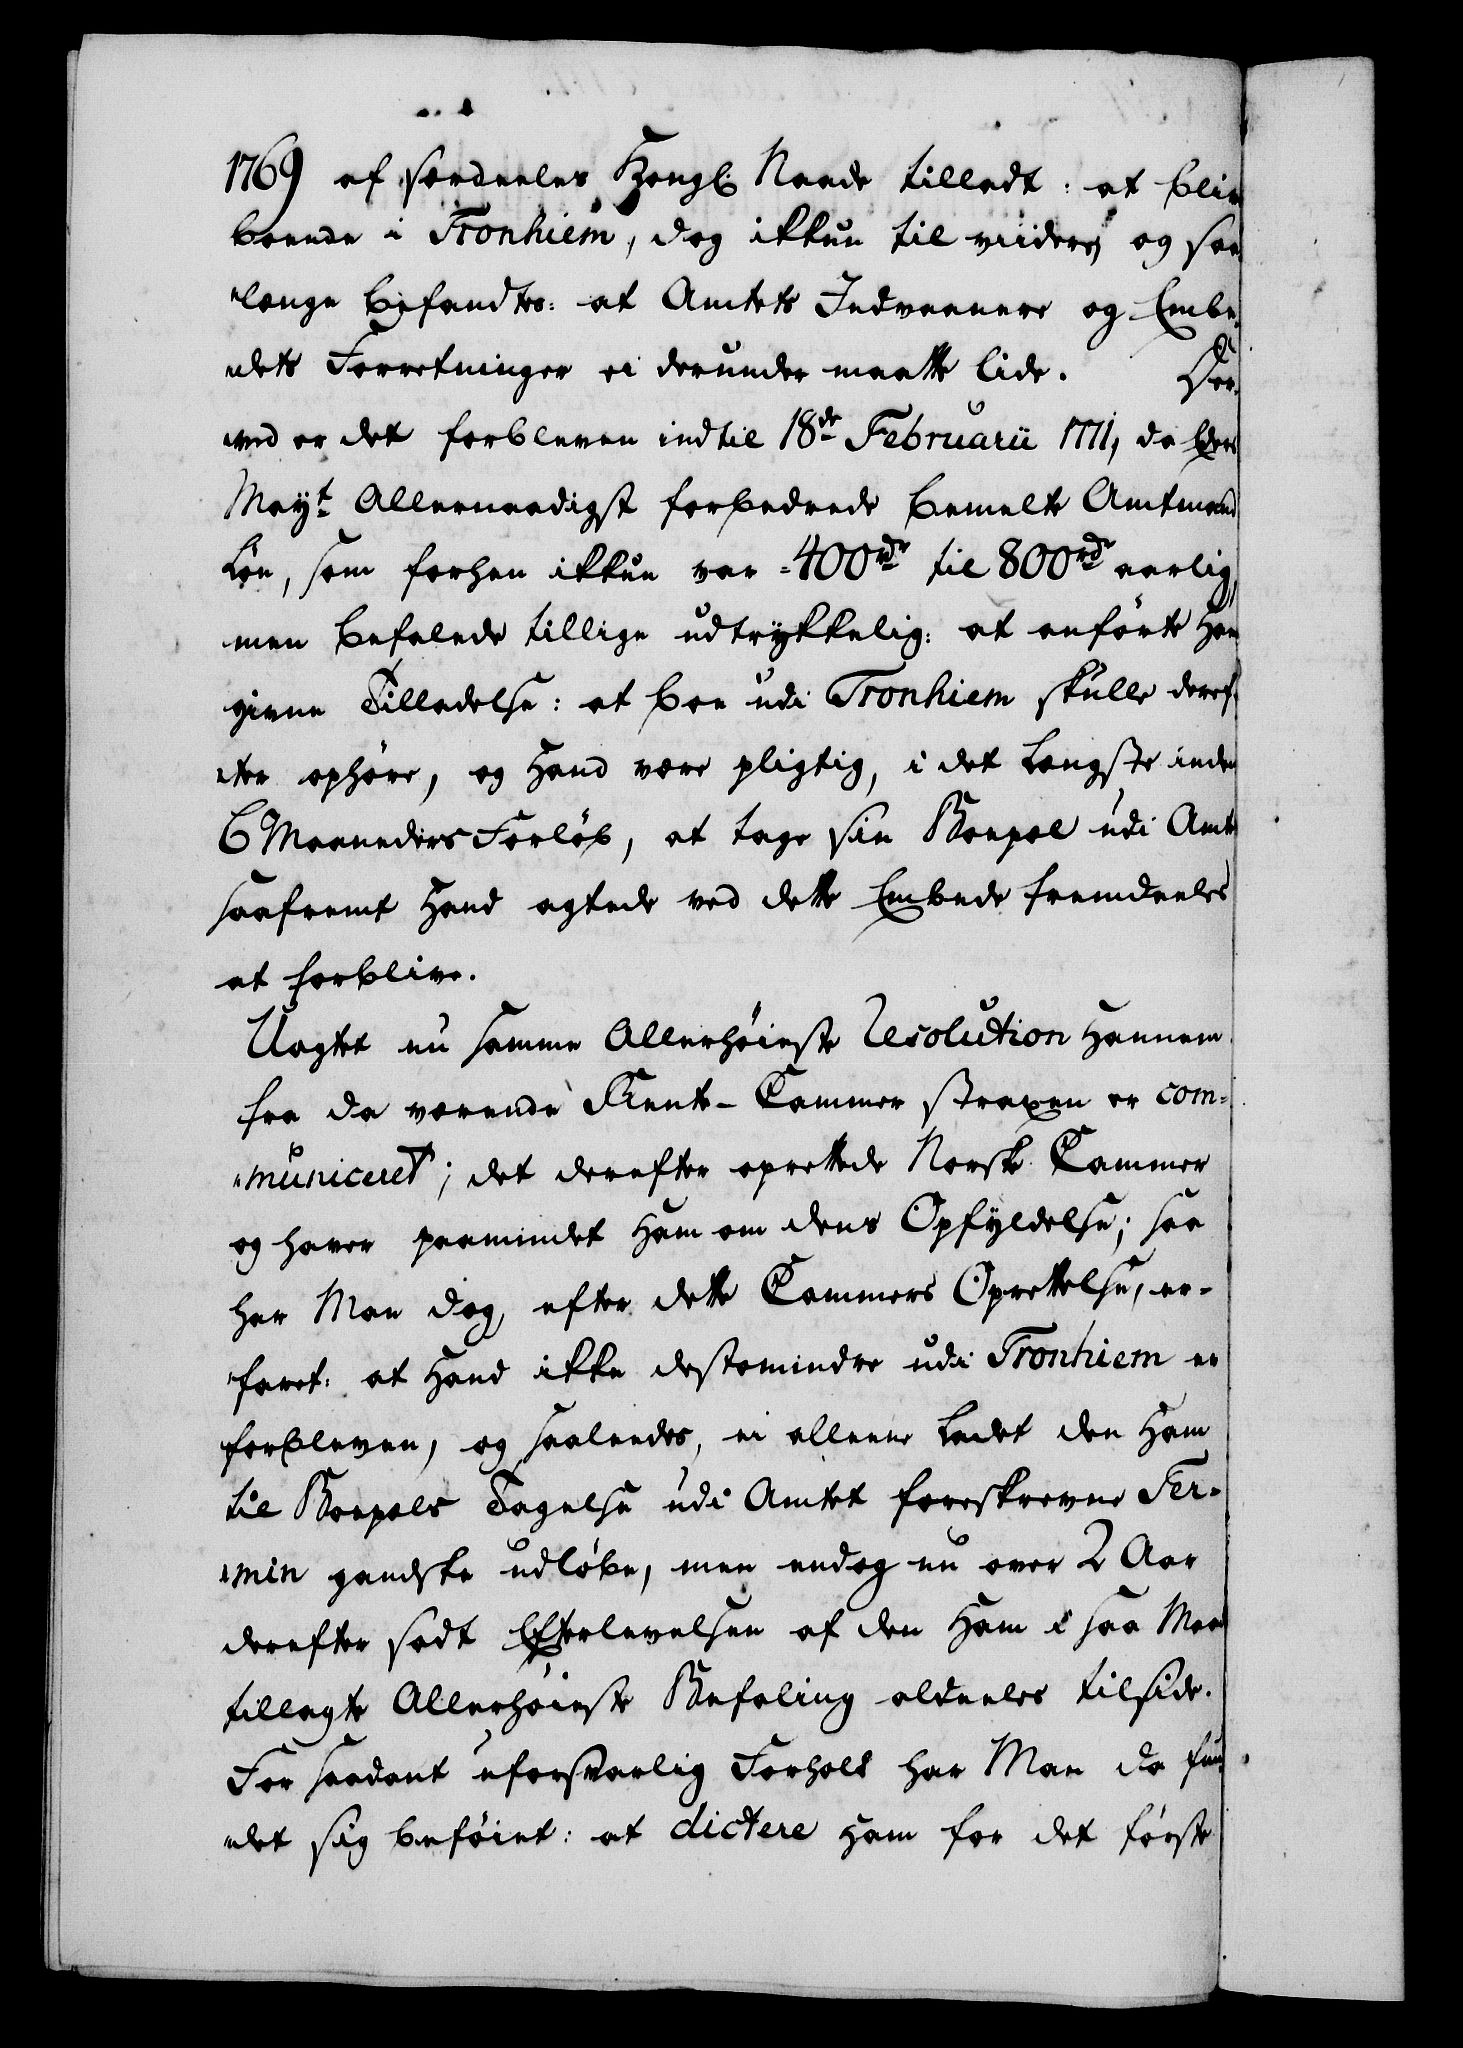 1769 af særdeeles Kongl: Naade tilladt: at blive
boende i Tronhiem, dog ikkun til viidere, og saa
længe befandtes: at Amtets Indvaanere og Embe,
„dets Forretninger ei derunder maatte lide. Der,
„ved er det forbleven indtil 18de Februarii 1771, da Eders
Mayt Allernaadigst forbedrede bemelte Amtmand
Løn, som forhen ikkun var 400rd til 800rd aarlig,
men befalede tillige udtrykkelig: at anførte Ham
givne Tilladelse: at boe udi Tronhiem skulle deref,
„ter ophøre, og Hand være pligtig, i det Længste inden
6 Maaneders Forløb, at tage sin Boepæl udi Amtet
saafremt Hand agtede ved dette Embede fremdeeles
at forblive.
Uagtet nu samme Allerhøieste Resolution Hannem
fra da værende Rente-Cammer straxen er com-
„municeret; det derefter oprettede Norske Cammer
og haver paamindet Ham om dens Opfyldelse; saa
har Man dog, efter dette Cammers Oprettelse, er-
„faret: at Hand ikke destomindre udi Tronhiem er
forbleven, og saaledes, ei alleene Ladet den Ham
til Boepæls Tagelse udi Amtet foreskrevne Ter-
„min gandske udløbe, men endog nu over 2 Aar
derefter sadt Efterlevelsen af den Ham i saa Maade
tillagte Allerhøieste Befaling aldeeles tilside.
For saadant uforsvarlig Forhold har Man da fun
„det sig beføiet: at dictere Ham for det første